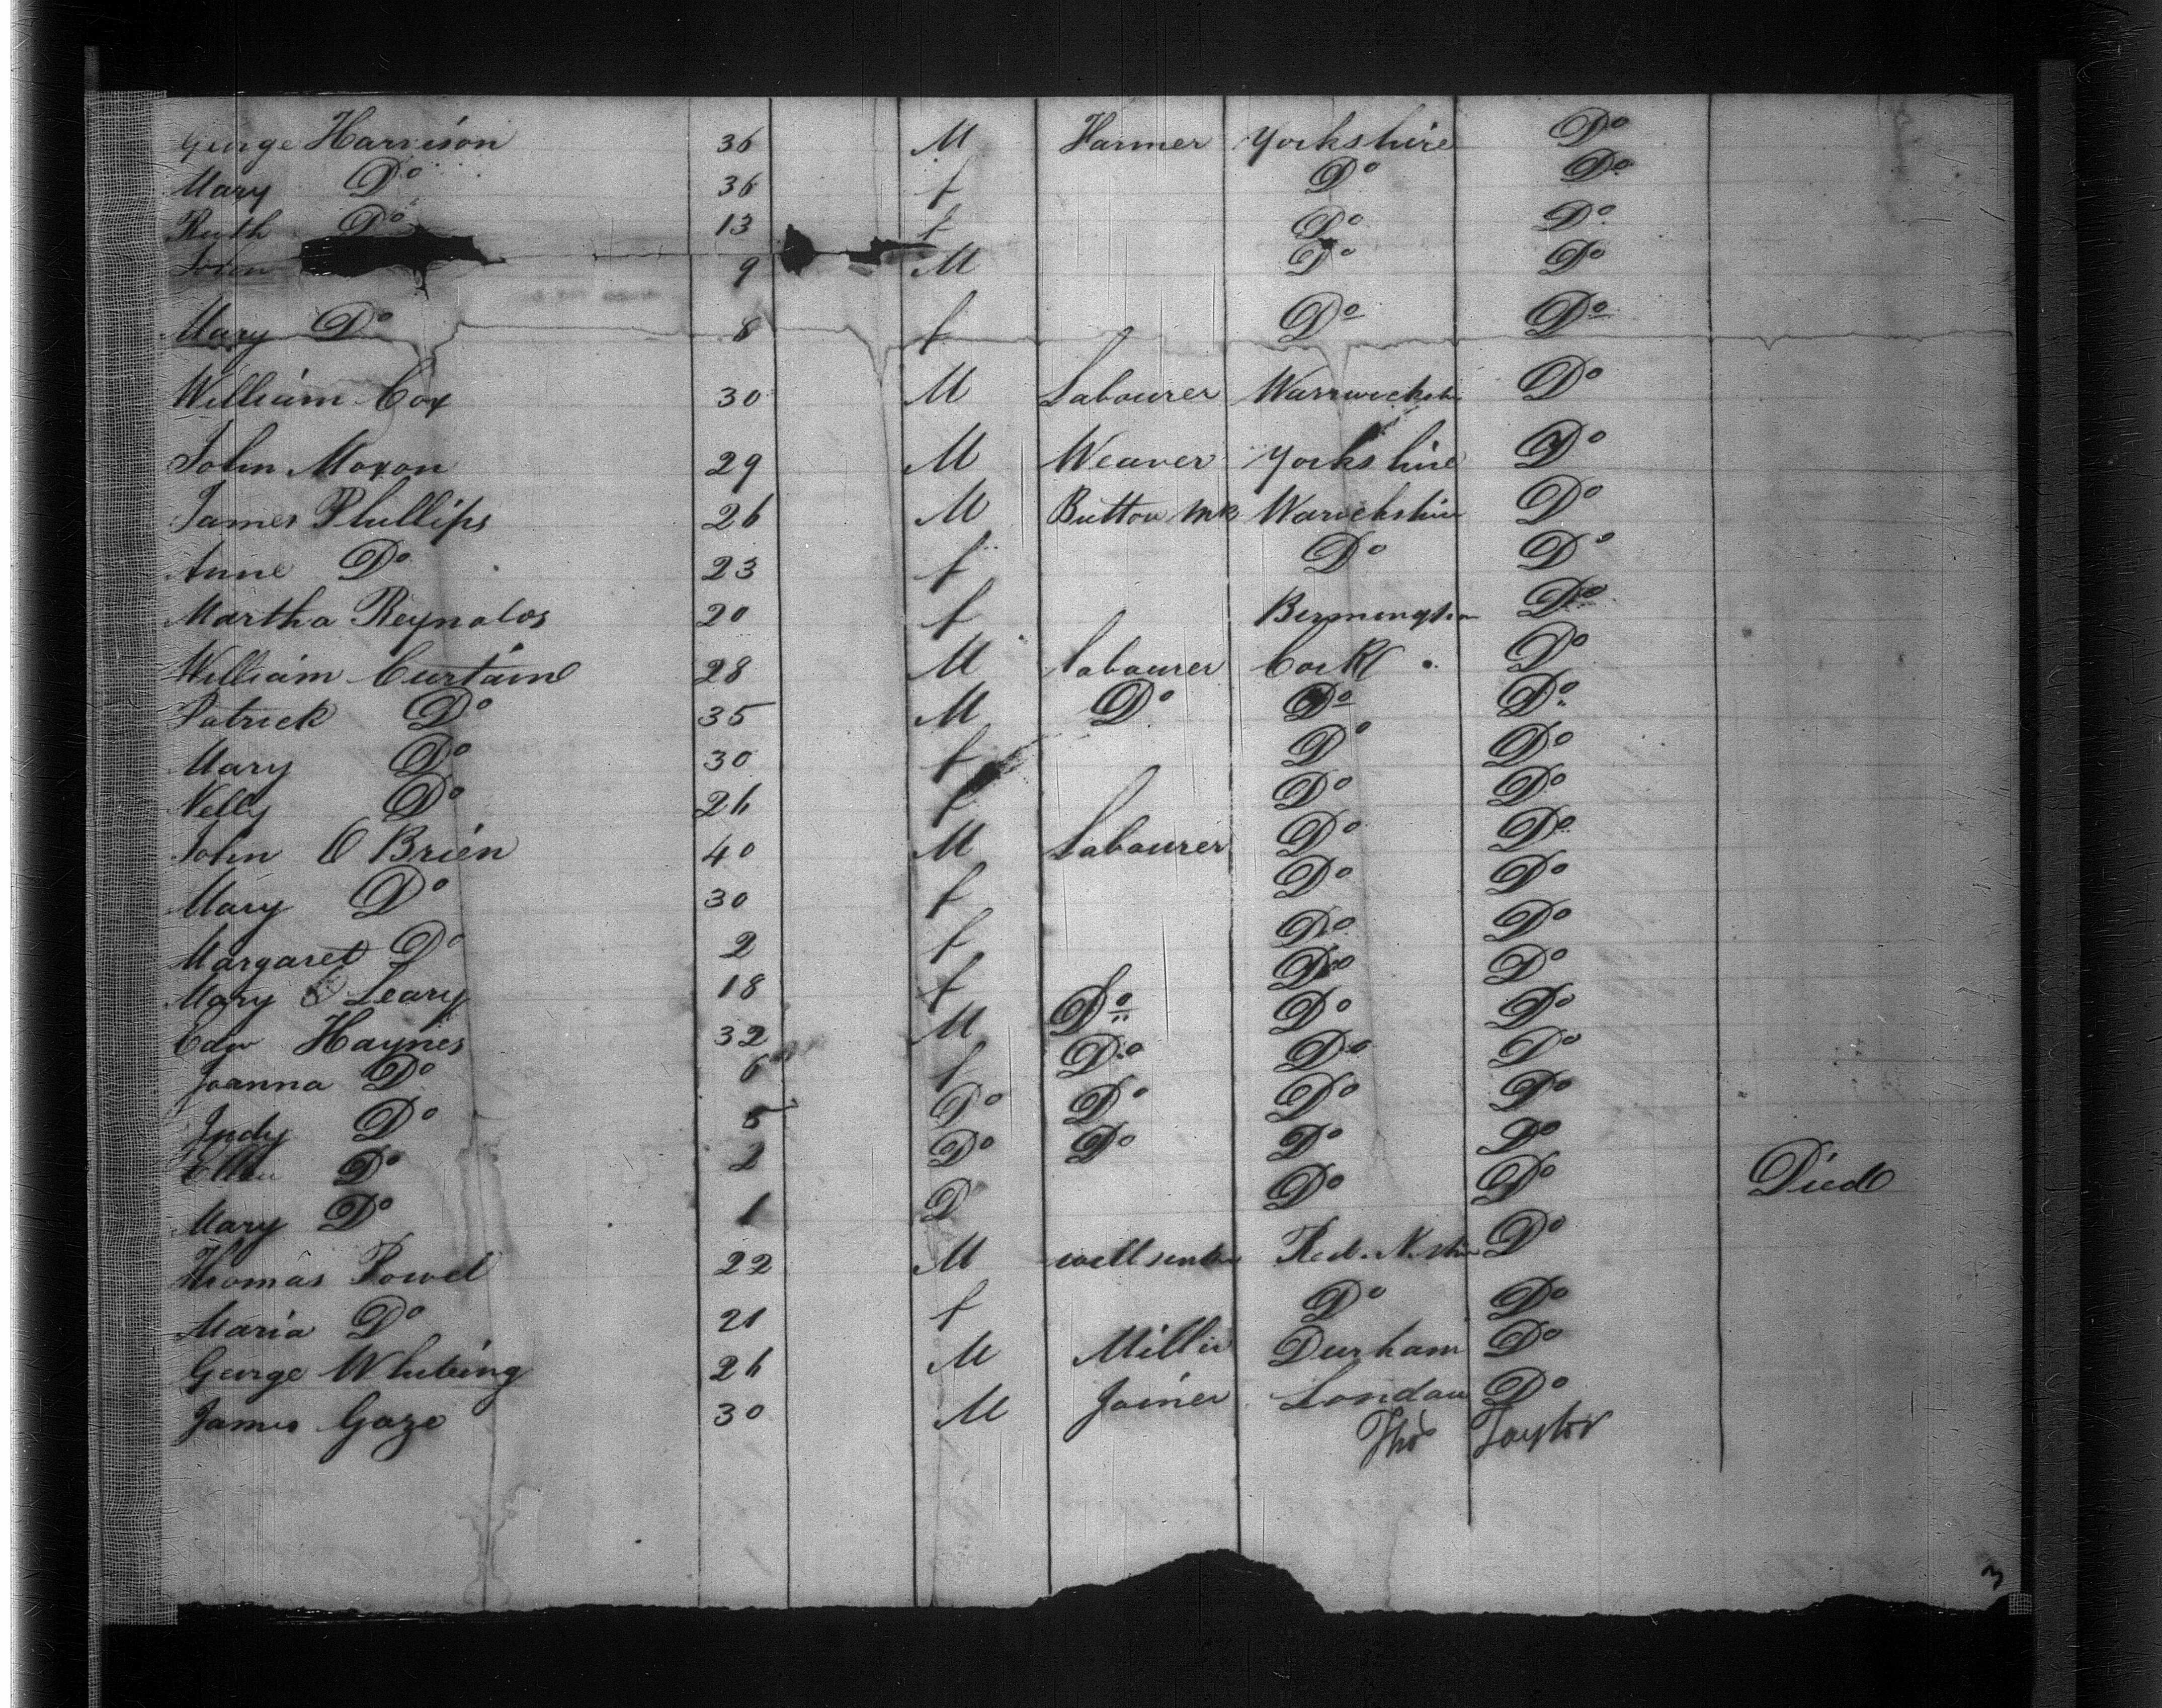 George Harrison 36 M Farmer Yorkshire Do
Mary Do 36 f Do Do
Ruth Do 13 f Do Do
John 9 M Do Do
Mary Do 8 f Do Do
William Cox 30 M Labourer Warrwickshi Do
John Moxon 29 M Weaver Yorkshire Do
James Phillips 26 M Button Mk Warickshire Do
Anne Do 23 f Do Do
Martha Reynolds 20 f Bermingham Do
William Curtaine 28 M Labourer Cork Do
Patrick Do 35 M Do Do Do
Mary Do 30 f Do Do
Nelly Do 26 f Do Do
John O Brien 40 M Labourer Do Do
Mary Do 30 f Do Do
Margaret Do 2 f Do Do
Mary O Leary 18 f Do Do
Edw Haynes 32 M Do Do Do
Joanna Do 6 f Do Do Do
Judy Do 5 Do Do Do Do
Ellen Do 2 Do Do Do Do
Mary Do 1 D Do Do Died
Thomas Powel 22 M well Do
Maria Do 21 f Do Do
George Whiteing 26 M Miller Durham Do
James Gaze 30 M Joiner London Do
Thos Taylor
3